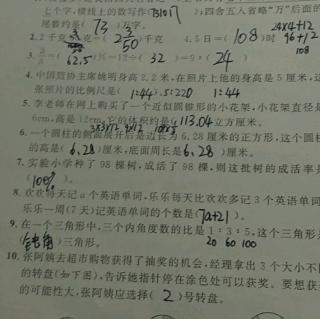 七个字,横线上的数写作(7310万),四舍五入省略“万”后面的
尾数约是(73)万字。
4.5日=(108)时
(62.5)%=12÷(32)=9:(24)
4.中国篮协主席姚明身高2.2米,在照片上他的身高是5厘米,这
张照片的比例尺是(1:44) 5:220 1:44
5.李老师在网上购买了一个近似圆锥形的小花架,小花架直径是
6cm,高是12cm,它的体积约是(113.04)立方厘米。
6.一个圆柱的侧面展开后是边长为6.28厘米的正方形,这个圆柱
的高是(6.28)厘米,底面周长是(6.28)厘米。
7.实验小学种了98棵树,成活了98棵,则这批树的成活率是
(100%)
8.欢欢每天记a个英语单词,乐乐每天比欢欢多记3个英语单词,
乐乐一周(7天)记英语单词的个数是(7a+21)。
9.在一个三角形中,三个内角度数的比是1:3:5,这个三角形是
(钝角)三角形。 20 60 100
10.张阿姨去超市购物获得了抽奖的机会,经理拿出3个大小不同
的转盘(如下图),告诉她指针停在涂色处可以获奖。要想获奖
的可能性大,张阿姨应选择(2)号转盘。